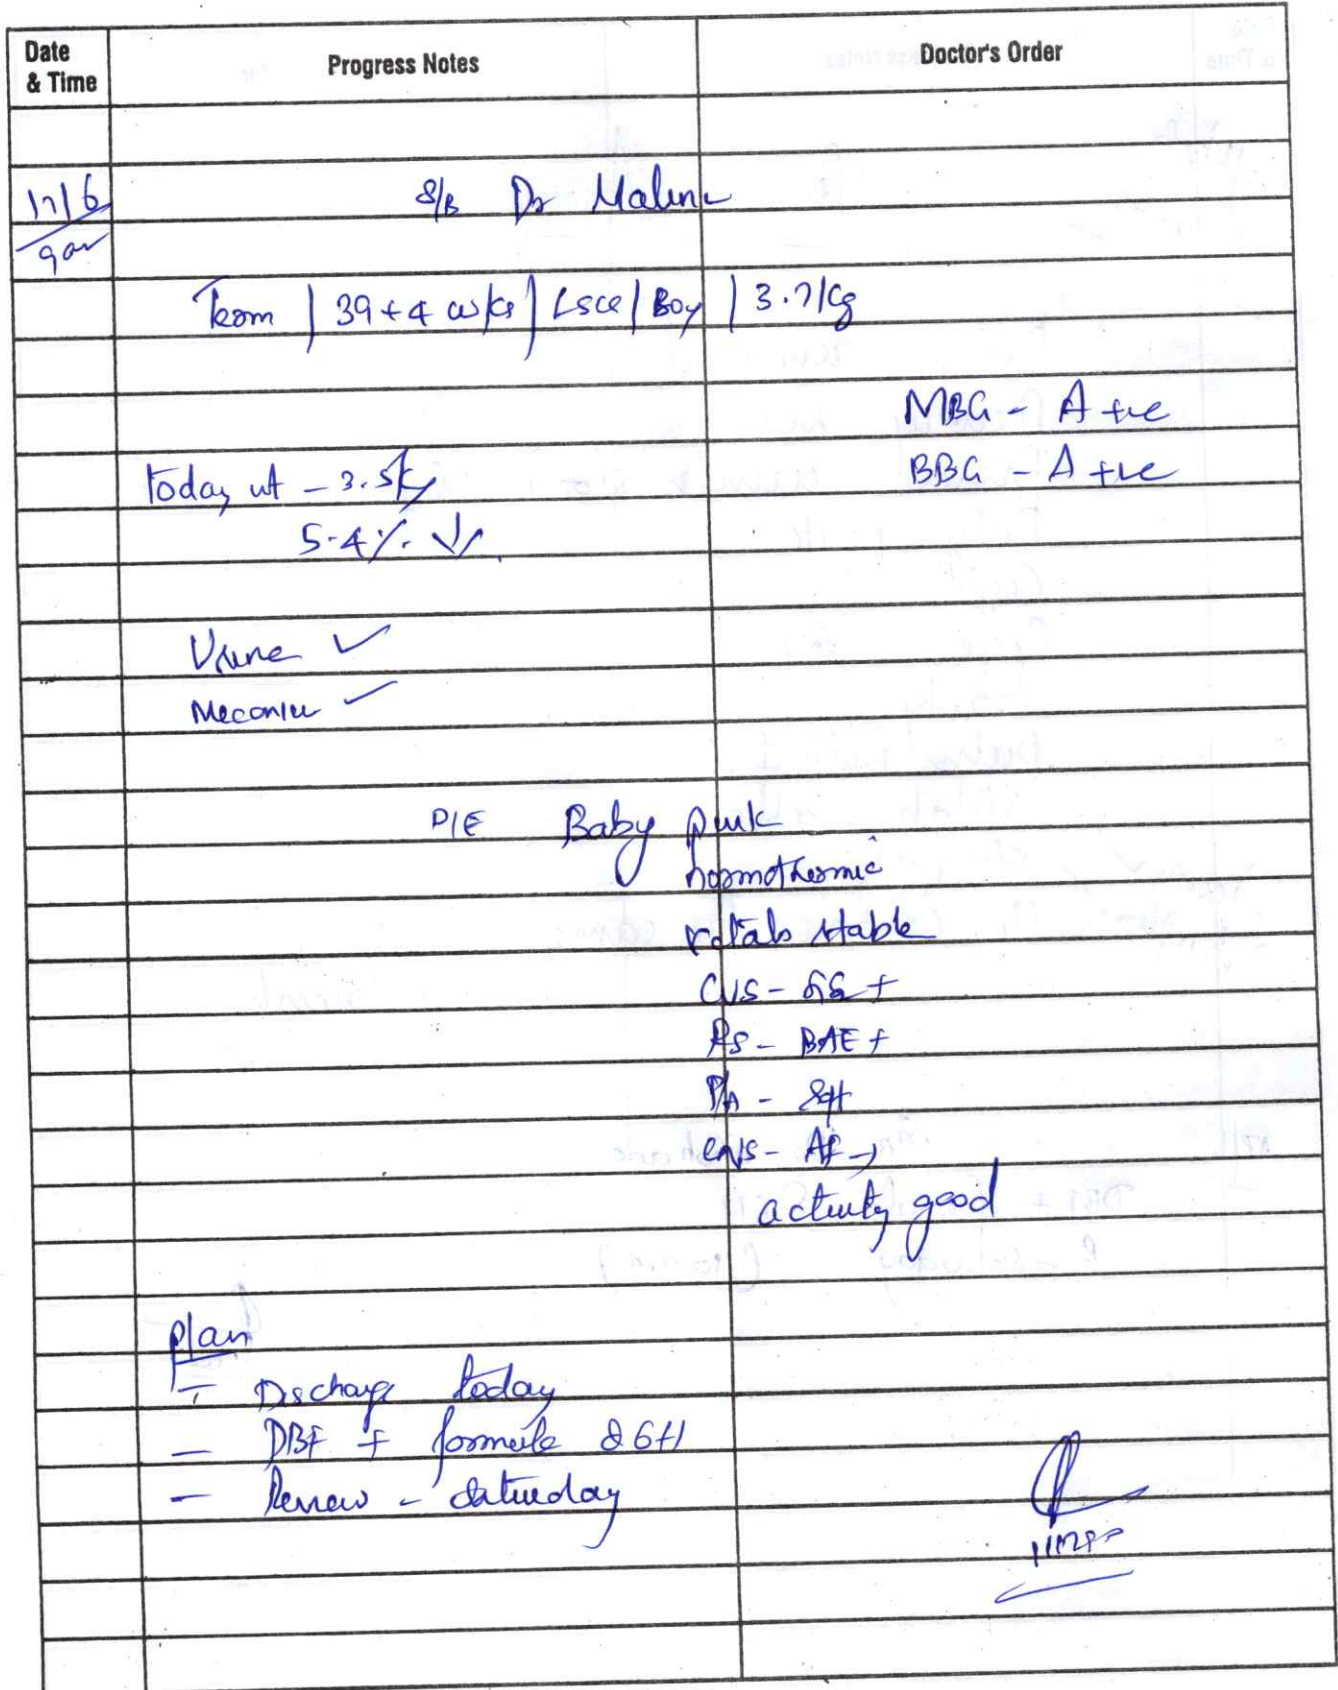 Date & Time Progress Notes Doctor's Order
17/6 S/B Dr Malini
9am
Term | 39+4 wks | LSCS | Boy | 3.7kg
MBG - A +ve
Today wt - 3.5kg BBG - A +ve
5.4% ↓
Urine ✓
Meconium ✓
P/E Baby pink
normothermic
vitals stable
CVS - S1S2 +
RS - BAE +
P/A - soft
CNS - AF →
activity good
Plan
- Discharge today
- DBF + formula
- Review - Saturday